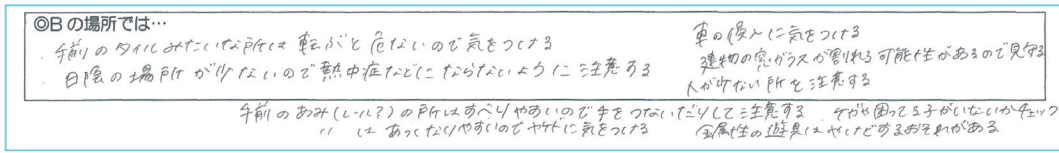 ◎Bの場所では…
・手前のタイルみたいな所は転ぶと危ないので気をつける
・日陰の場所が少ないので熱中症などにならないように注意する
車の侵入に気をつける
建物の窓ガラスが割れる可能性があるので見守る
人が少ない所を注意する
手前のあみ(レール?)の所はすべりやすいので手をつないだりして注意する
〃 はあつくなりやすいのでヤケドに気をつける
ケガや困ってる子がいないかチェック
金属性の遊具はやけどするおそれがある